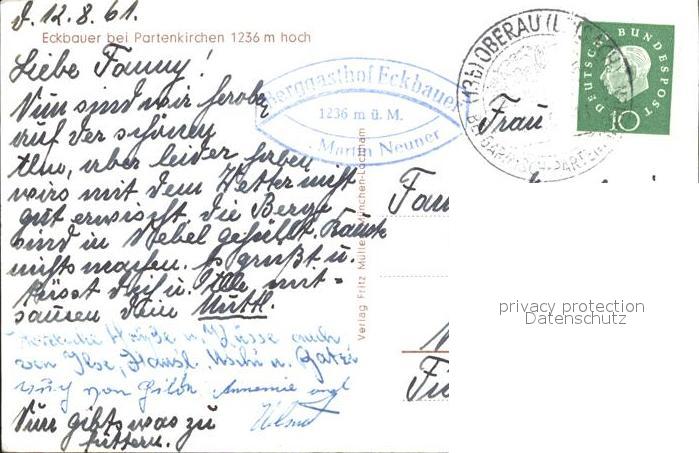 d. 12.8.61.
Eckbauer bei Partenkirchen 1236 m hoch
Liebe Fanny!
Nun sind wir heroben
auf der schönen
Alm, aber leider haben
wirs mit dem Wetter nicht
gut erwischt, die Berge
sind in Nebel gehüllt. Kannst
nichts machen. Es grüßt u.
küsst dich u. Alle mit-
sausen dein Mutti.
Herzliche Grüße u. Küsse auch
von Ilse, Hansl, Uschi u.
auch von Hilde Annemie und
Helmut
Nun gibts was zu
futtern.
Berggasthof Eckbauer
1236 m ü. M.
Martin Neuner
Verlag Fritz Müller München-Lochham
(13b) OBERAU
BEI GARMISCH-PARTENK
DEUTSCHE BUNDESPOST
10
Frau
Fan
privacy protection
Datenschutz